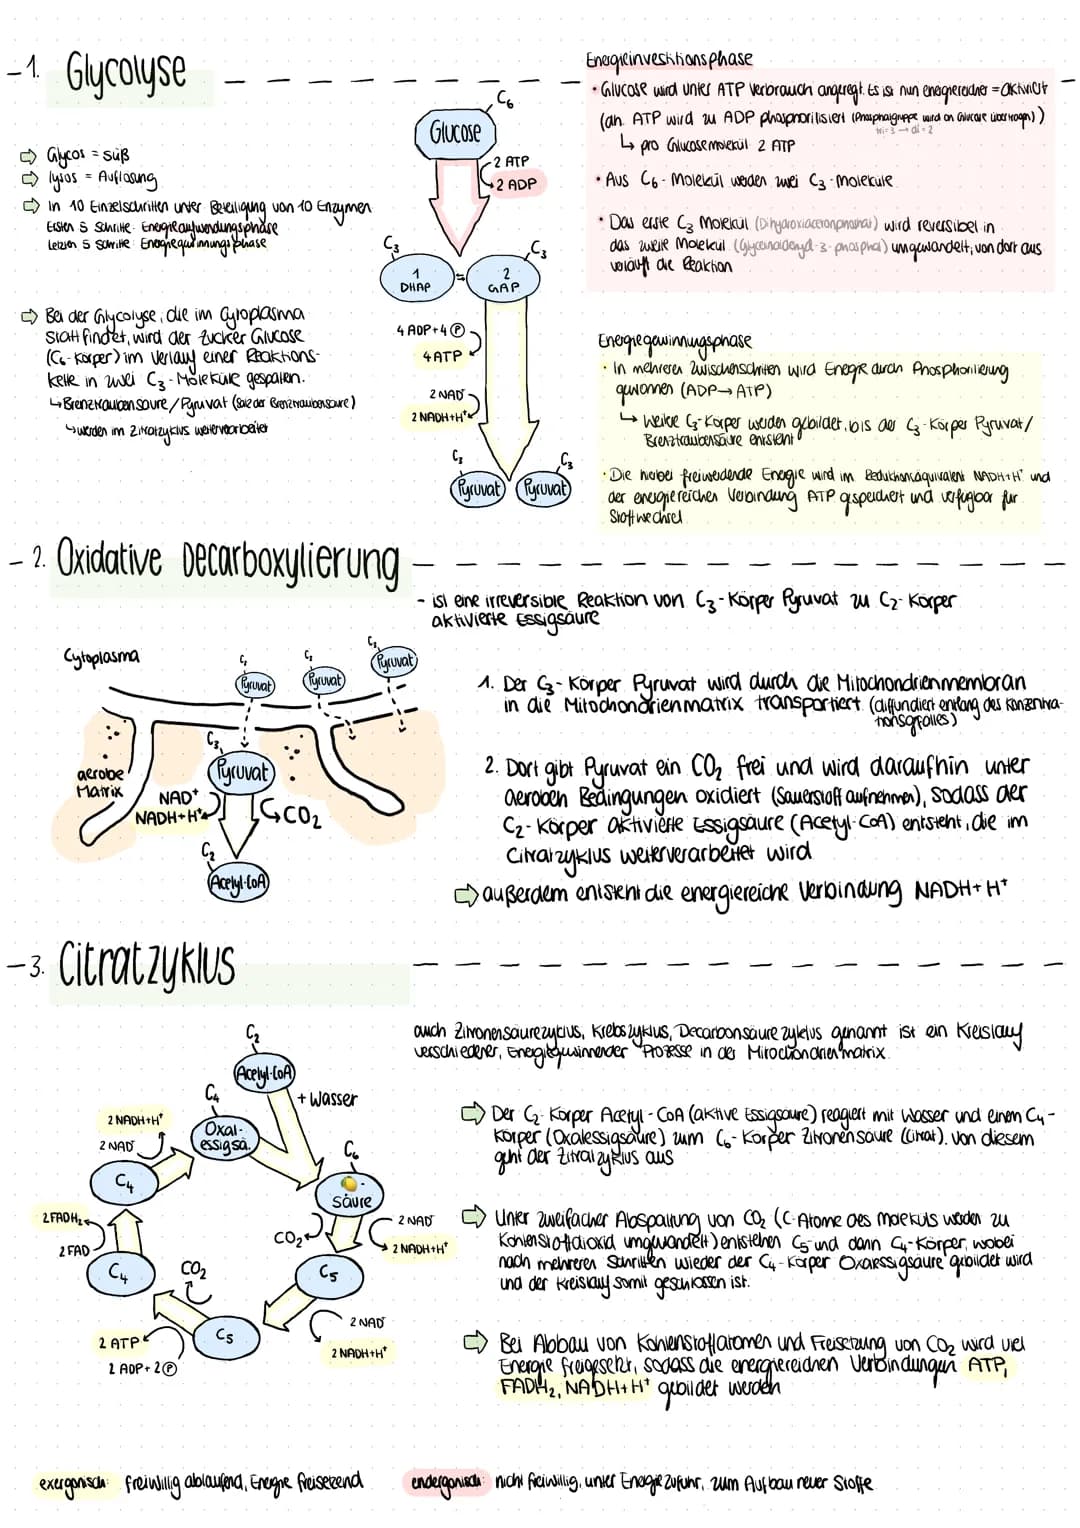 1. Glycolyse
Glycos = süß
lysos = Auflösung
in 10 Einzelschritten unter Beteiligung von 10 Enzymen
Ersten 5 Schritte: Energieaufwendungsphase
Letzten 5 Schritte: Energiegewinnungsphase
Bei der Glycolyse, die im Cytoplasma
stattfindet, wird der Zucker Glucose
(C6-Körper) im Verlauf einer Reaktions-
kette in zwei C3-Moleküle gespalten.
↳ Brenztraubensäure/Pyruvat (Salz der Brenztraubensäure)
↳ werden im Zitratzyklus weiterverarbeitet
C6
Glucose
2 ATP
2 ADP
C3
C3
1
DHAP
2
GAP
4 ADP+4 P
4 ATP
2 NAD+
2 NADH+H+
C3
C3
Pyruvat
Pyruvat
Energieinvestitionsphase
• Glucose wird unter ATP Verbrauch angeregt. Es ist nun energiereicher = aktiviert
(dh. ATP wird zu ADP phosphorilisiert (Phosphatgruppe wird an Glucose übertragen))
tri=3 → di=2
↳ pro Glucosemolekül 2 ATP
• Aus C6-Molekül werden zwei C3-Moleküle
• Das erste C3 Molekül (Dihydroxiacetonphosphat) wird reversibel in
das zweite Molekül (Glycerinaldehyd-3-phosphat) umgewandelt, von dort aus
verläuft die Reaktion
Energiegewinnungsphase
• In mehreren Zwischenschritten wird Energie durch Phosphorilierung
gewonnen (ADP → ATP)
↳ Weitere C3-Körper werden gebildet, bis der C3-Körper Pyruvat/
Brenztraubensäure entsteht
• Die hierbei freiwerdende Energie wird im Reduktionsäquivalent NADH+H+ und
der energiereichen Verbindung ATP gespeichert und verfügbar für
Stoffwechsel
2. Oxidative Decarboxylierung
- ist eine irreversible Reaktion von C3-Körper Pyruvat zu C2-Körper
aktivierte Essigsäure
Cytoplasma
C3
Pyruvat
C3
Pyruvat
C3
Pyruvat
C3
Pyruvat
aerobe
Matrix
NAD+
NADH+H+
CO2
C2
Acetyl-CoA
1. Der C3-Körper Pyruvat wird durch die Mitochondrienmembran
in die Mitochondrienmatrix transportiert (diffundiert entlang des Konzentra-
tionsgefälles)
2. Dort gibt Pyruvat ein CO2 frei und wird daraufhin unter
aeroben Bedingungen oxidiert (Sauerstoff aufnehmen), sodass der
C2-Körper aktivierte Essigsäure (Acetyl-CoA) entsteht, die im
Citratzyklus weiterverarbeitet wird
außerdem entsteht die energiereiche Verbindung NADH+H+
3. Citratzyklus
auch Zitronensäurezyklus, Krebszyklus, Decarbonsäure zyklus genannt ist ein Kreislauf
verschiedener, Energiegewinnender Prozesse in der Mitochondrienmatrix.
C2
Acetyl-CoA
+ Wasser
C4
Oxal-
essigsä.
C6
säure
2 NADH+H+
2 NAD+
C4
2 FADH2
2 FAD
C4
CO2
C5
2 ATP
2 ADP+2 P
CO2
C5
2 NAD+
2 NADH+H+
2 NAD+
2 NADH+H+
Der C2-Körper Acetyl-CoA (aktive Essigsäure) reagiert mit Wasser und einem C4-
Körper (Oxalessigsäure) zum C6-Körper Zitronensäure (Citrat). Von diesem
geht der Zitratzyklus aus
Unter zweifacher Abspaltung von CO2 (C-Atome des Moleküls werden zu
Kohlenstoffdioxid umgewandelt) entstehen C5 und dann C4-Körper, wobei
nach mehreren Schritten wieder der C4-Körper Oxalessigsäure gebildet wird
und der Kreislauf somit geschlossen ist.
Bei Abbau von Kohlenstoffatomen und Freisetzung von CO2 wird viel
Energie freigesetzt, sodass die energiereichen Verbindungen ATP,
FADH2, NADH+H+ gebildet werden
exergonisch: freiwillig ablaufend, Energie freisetzend
endergonisch: nicht freiwillig, unter Energiezufuhr, zum Aufbau neuer Stoffe